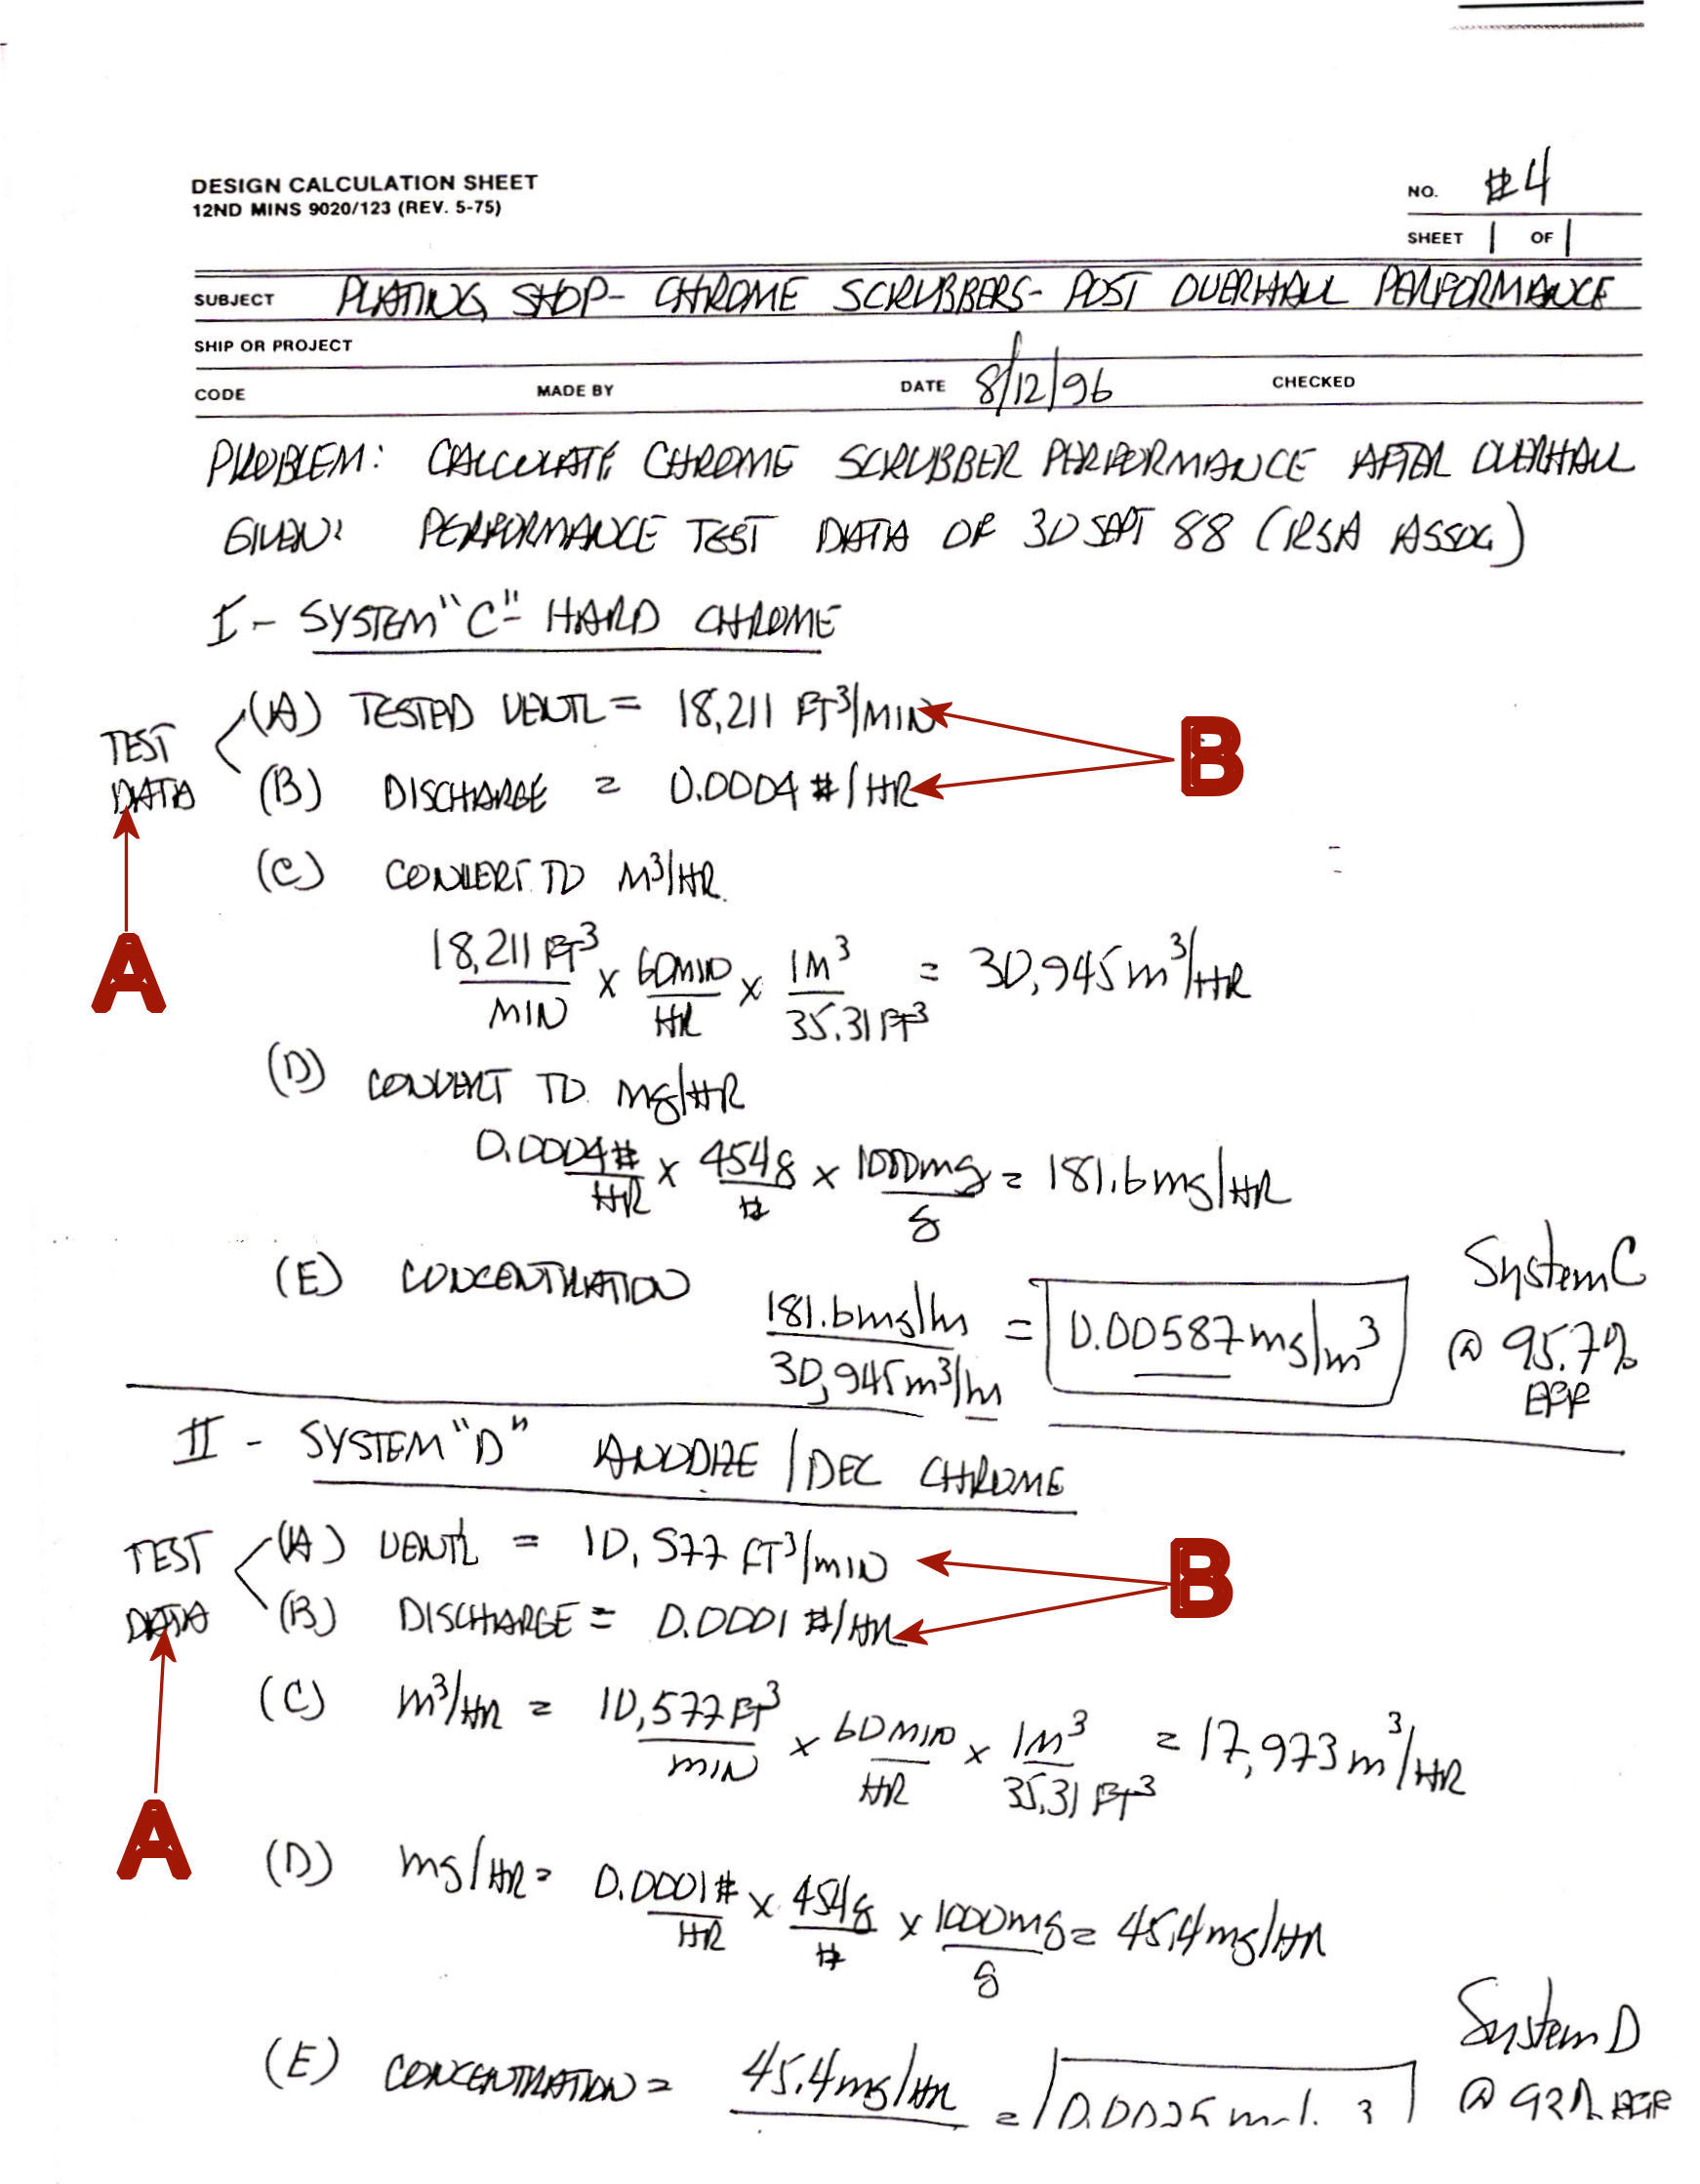 DESIGN CALCULATION SHEET
12ND MINS 9020/123 (REV. 5-75)
NO. #4
SHEET 1 OF 1
SUBJECT PLATING SHOP- CHROME SCRUBBERS- POST OVERHAUL PERFORMANCE
SHIP OR PROJECT
CODE MADE BY DATE 8/12/96 CHECKED
PROBLEM: CALCULATE CHROME SCRUBBER PERFORMANCE AFTER OVERHAUL
GIVEN: PERFORMANCE TEST DATA OF 30 SEPT 88 (RSA ASSOC)
I - SYSTEM "C" - HARD CHROME
TEST DATA
(A) TESTED VENTL = 18,211 FT³/MIN
B
(B) DISCHARGE = 0.0004 #/HR
(C) CONVERT TO M³/HR
A
18,211 FT³/MIN x 60MIN/HR x 1M³/35.31FT³ = 30,945 m³/HR
(D) CONVERT TO mg/HR
0.0004#/HR x 454g/# x 1000mg/g = 181.6mg/HR
(E) CONCENTRATION 181.6mg/hr / 30,945m³/hr = 0.00587 mg/m³
System C
@ 95.7%
EFF
II - SYSTEM "D" ANODIZE / DEC CHROME
TEST DATA
(A) VENTL = 10,577 FT³/MIN
B
(B) DISCHARGE = 0.0001 #/HR
(C) m³/HR = 10,577 FT³/MIN x 60 MIN/HR x 1M³/35.31 FT³ = 17,973 m³/HR
A
(D) mg/HR = 0.0001#/HR x 454g/# x 1000mg/g = 45.4mg/HR
System D
(E) CONCENTRATION = 45.4mg/HR = 0.0025
@ 92% EFF